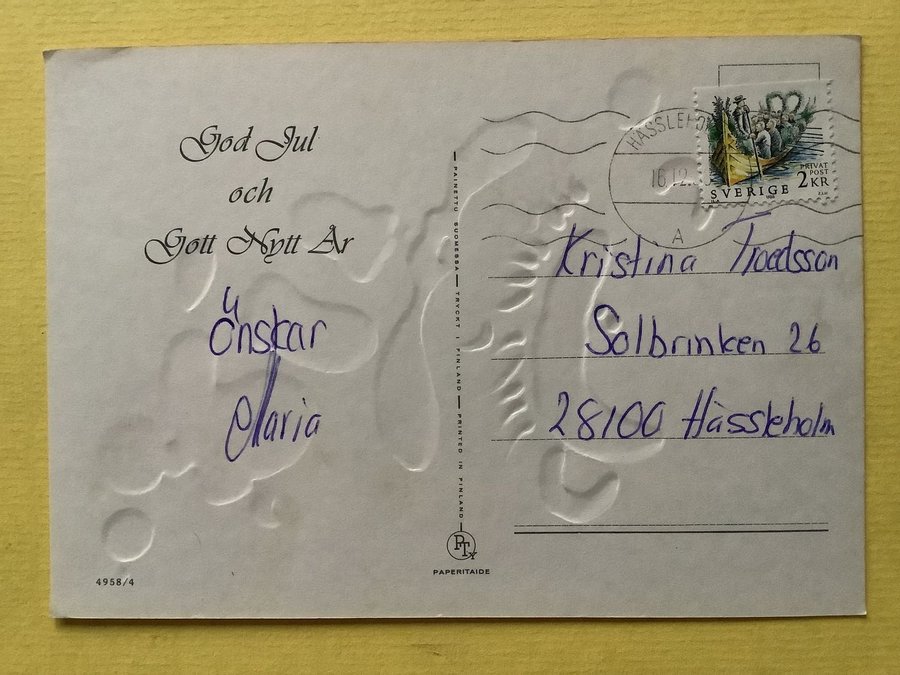 God Jul
och
Gott Nytt År
Önskar
Maria
4958/4
PAINETTU SUOMESSA — TRYCKT I FINLAND — PRINTED IN FINLAND
PTY
PAPERITAIDE
HÄSSLEHO
16.12.
A
PRIVAT
POST
SVERIGE 2KR
Kristina Troedsson
Solbrinken 26
28100 Hässleholm